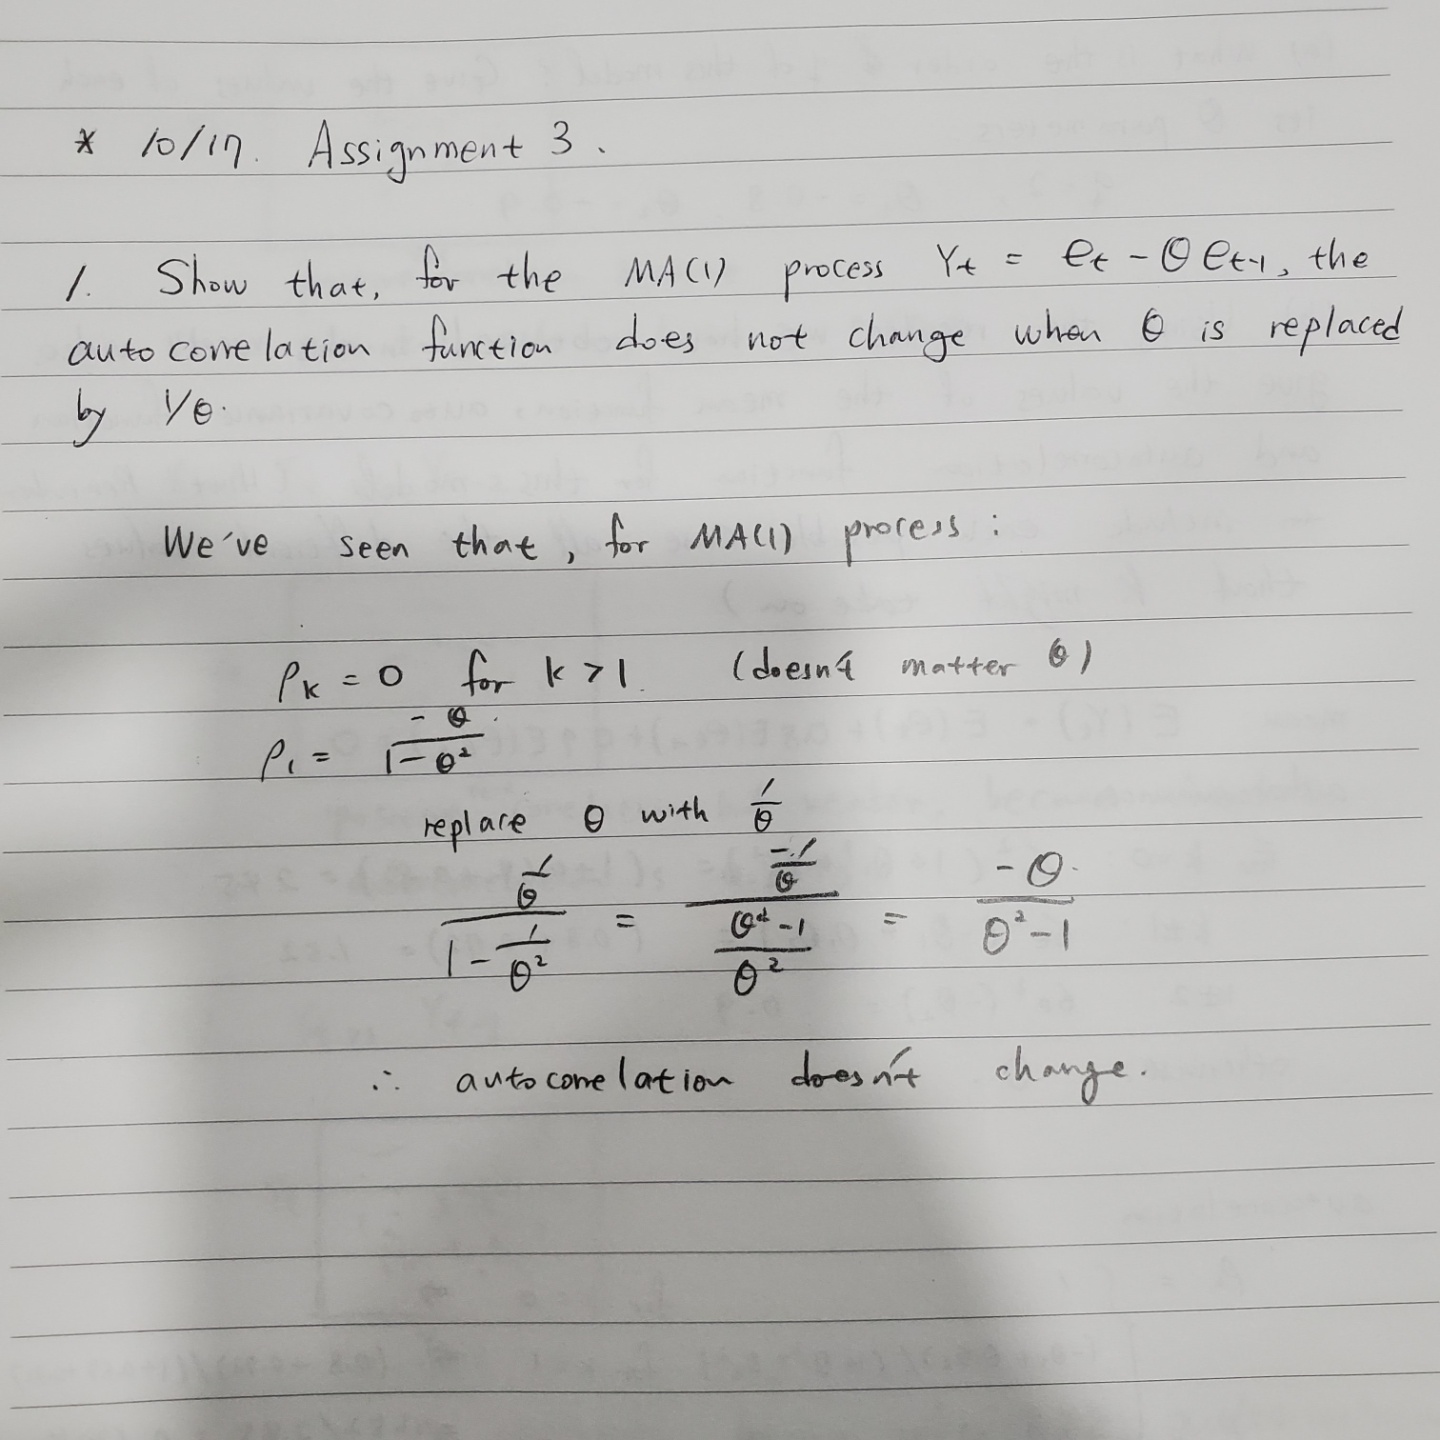 * 10/17. Assignment 3.
1. Show that, for the MA(1) process Yt = et - θ et-1, the
autocorrelation function does not change when θ is replaced
by 1/θ.
We've seen that, for MA(1) process:
ρk = 0 for k > 1. (doesn't matter θ)
ρ1 = -θ / (1 - θ²)
replace θ with 1/θ
(-1/θ) / (1 - 1/θ²) = (-1/θ) / ((θ² - 1)/θ²) = -θ / (θ² - 1)
∴ autocorrelation doesn't change.